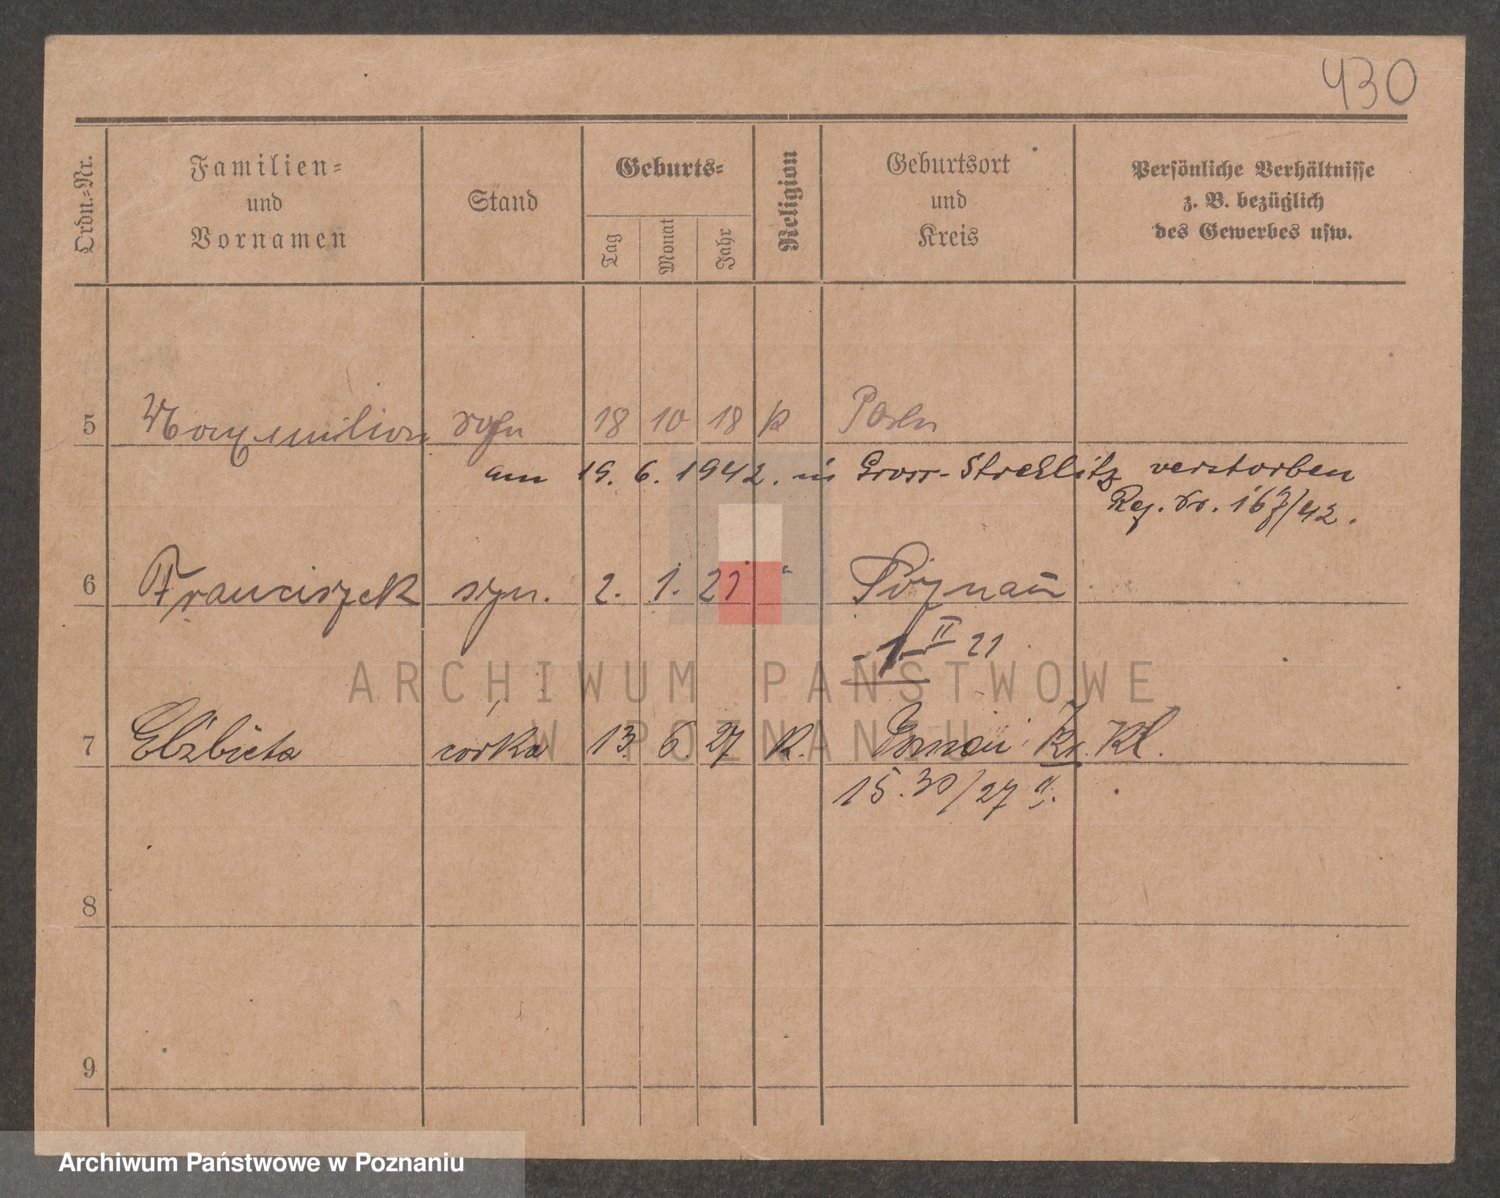 430
Ordn.-Nr.
Familien-
und
Vornamen
Stand
Geburts-
Tag
Monat
Jahr
Religion
Geburtsort
und
Kreis
Persönliche Verhältnisse
z. B. bezüglich
des Gewerbes usw.
5 Maxymilian syn 18 10 18 k Posen
am 19. 6. 1942. in Gross-Strehlitz verstorben
Reg. Nr. 167/42.
6 Franciszek syn. 2. 1. 21 " Poznań
1 II 21
ARCHIWUM PAŃSTWOWE
W POZNANIU
7 Elżbieta córka 13. 6 27 k. Kr. Kl.
15. 30/27
8
9
Archiwum Państwowe w Poznaniu